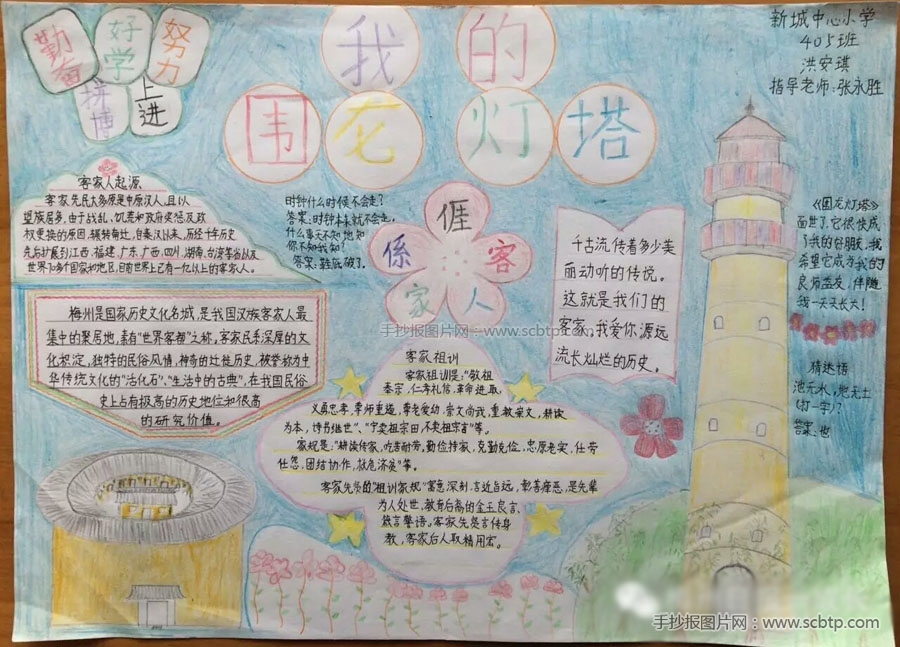 勤奋
好学
努力
拼博
上进
我的
围龙灯塔
新城中心小学
405班
洪安琪
指导老师:张永胜
客家人起源
客家先民大多原是中原汉人,且以
望族居多,由于战乱、饥荒和政府奖惩及政
权更换的原因,辗转南迁,自秦汉以来,历经千年历史
先后扩展到江西、福建、广东、广西、四川、湖南、台湾等省以及
世界70多个国家和地区,目前世界上已有一亿以上的客家人。
时钟什么时候不会走?
答案:时钟本来就不会走。
什么事天不知地知
你不知我知?
答案:鞋底破了。
𠊎
係
客
家
人
梅州是国家历史文化名城,是我国汉族客家人最
集中的聚居地,素有"世界客都"之称,客家民系深厚的文
化积淀,独特的民俗风情,神奇的迁徙历史,被誉称为中
华传统文化的"活化石"、"生活中的古典",在我国民俗
史上占有极高的历史地位和很高
的研究价值。
千古流传着多少美
丽动听的传说。
这就是我们的
客家,我爱你源远
流长灿烂的历史。
《围龙灯塔》
面世了,它很快成
了我的好朋胶,我
希望它成为我的
良师益友,伴随
我一天天长大!
猜迷语
池无水,地无土
(打一字)?
答案:也
手抄报图片网:www.scbtp.com
客家祖训
客家祖训是:"敬祖
睦宗,仁孝礼信,革命进取,
义勇忠孝,尊师重道,尊老爱幼,崇文尚武,重教崇文,耕读
为本,诗书继世"、"宁卖祖宗田不卖祖宗言"等。
家规是:"耕读传家,吃苦耐劳,勤俭持家,克勤克俭,忠厚老实,任劳
任怨,团结协作,救危济急"等。
客家先贤的"祖训家规"寓意深刻,言近旨远,彰善瘅恶,是先辈
为人处世、教育后裔的金玉良言、
箴言警语。客家先贤言传身
教,客家后人取精用宏。
手抄报图片网:www.scbtp.com